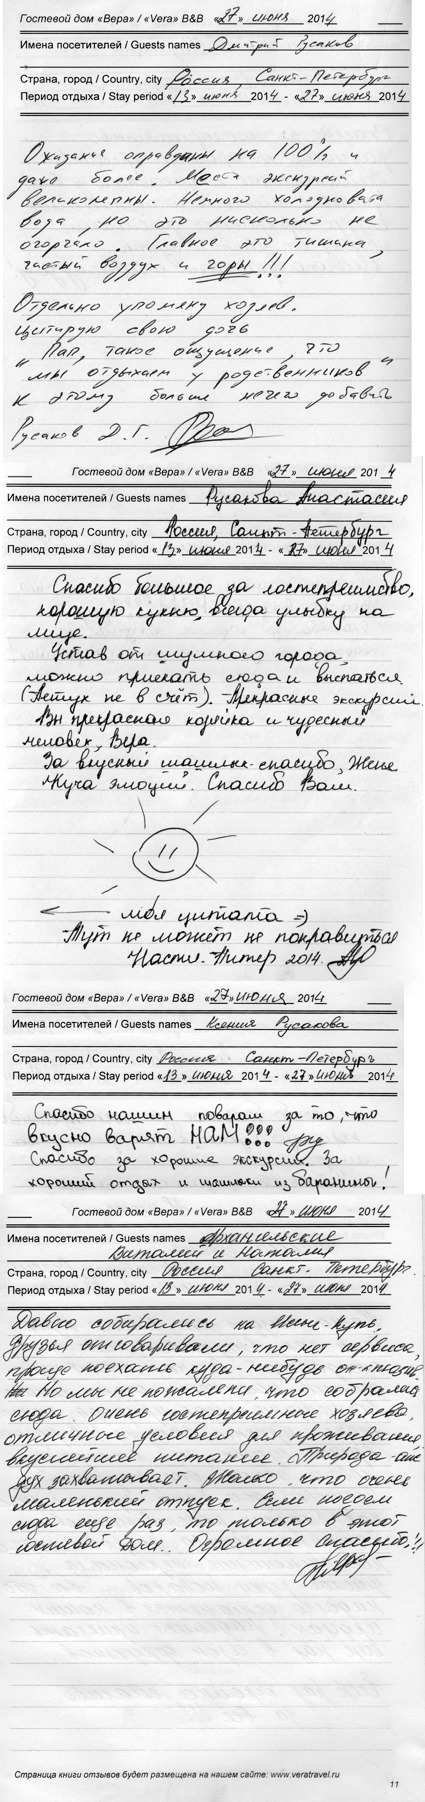 Гостевой дом «Вера» / «Vera» B&B «27» июня 2014
Имена посетителей / Guests names Дмитрий Русаков
Страна, город / Country, city Россия, Санкт-Петербург
Период отдыха / Stay period «13» июня 2014 - «27» июня 2014
Ожидание оправданы на 100% и
даже более. Масса экскурсий
великолепны. Немного холодновата
вода, но это нисколько не
огорчало. Главное это тишина,
чистый воздух и горы!!!
Отдельно упомяну хозяев.
Цитирую свою дочь
"Пап, такое ощущение, что
мы отдыхаем у родственников"
К этому больше нечего добавить
Русаков Д.Г.
Гостевой дом «Вера» / «Vera» B&B «27» июня 2014
Имена посетителей / Guests names Русакова Анастасия
Страна, город / Country, city Россия, Санкт-Петербург
Период отдыха / Stay period «13» июня 2014 - «27» июня 2014
Спасибо большое за гостеприимство,
хорошую кухню, всегда улыбку на
лице.
Устав от шумного города,
можно приехать сюда и выспаться
(Петух не в счёт). Прекрасные экскурсии.
Вы прекрасная хозяйка и чудесный
человек, Вера.
За вкусный шашлык-спасибо, Жене
Куча эмоций. Спасибо Вам.
моя цитата =)
Тут не может не понравиться
Настя. Питер 2014.
Гостевой дом «Вера» / «Vera» B&B «27» июня 2014
Имена посетителей / Guests names Ксения Русакова
Страна, город / Country, city Россия Санкт-Петербург
Период отдыха / Stay period «13» июня 2014 - «27» июня 2014
Спасибо нашим поварам за то, что
вкусно варят НАМ!!!
Спасибо за хорошие экскурсии. За
хороший отдых и шашлыки из баранины!
Гостевой дом «Вера» / «Vera» B&B «27» июня 2014
Имена посетителей / Guests names Архангельские
Виталий и Наталия
Страна, город / Country, city Россия Санкт-Петербург.
Период отдыха / Stay period «13» июня 2014 - «27» июня 2014
Давно собирались на Иссык-Куль,
друзья отговаривали, что нет сервиса,
проще поехать куда-нибудь
Но мы не пожалели, что собрались
сюда. Очень гостеприимные хозяева,
отличные условия для проживания
вкуснейшее питание. Природа
дух захватывает. Жалко, что очень
маленький отпуск. Если поедем
сюда еще раз, то только в этот
гостевой дом.. Огромное спасибо!!!
Страница книги отзывов будет размещена на нашем сайте: www.veratravel.ru
11